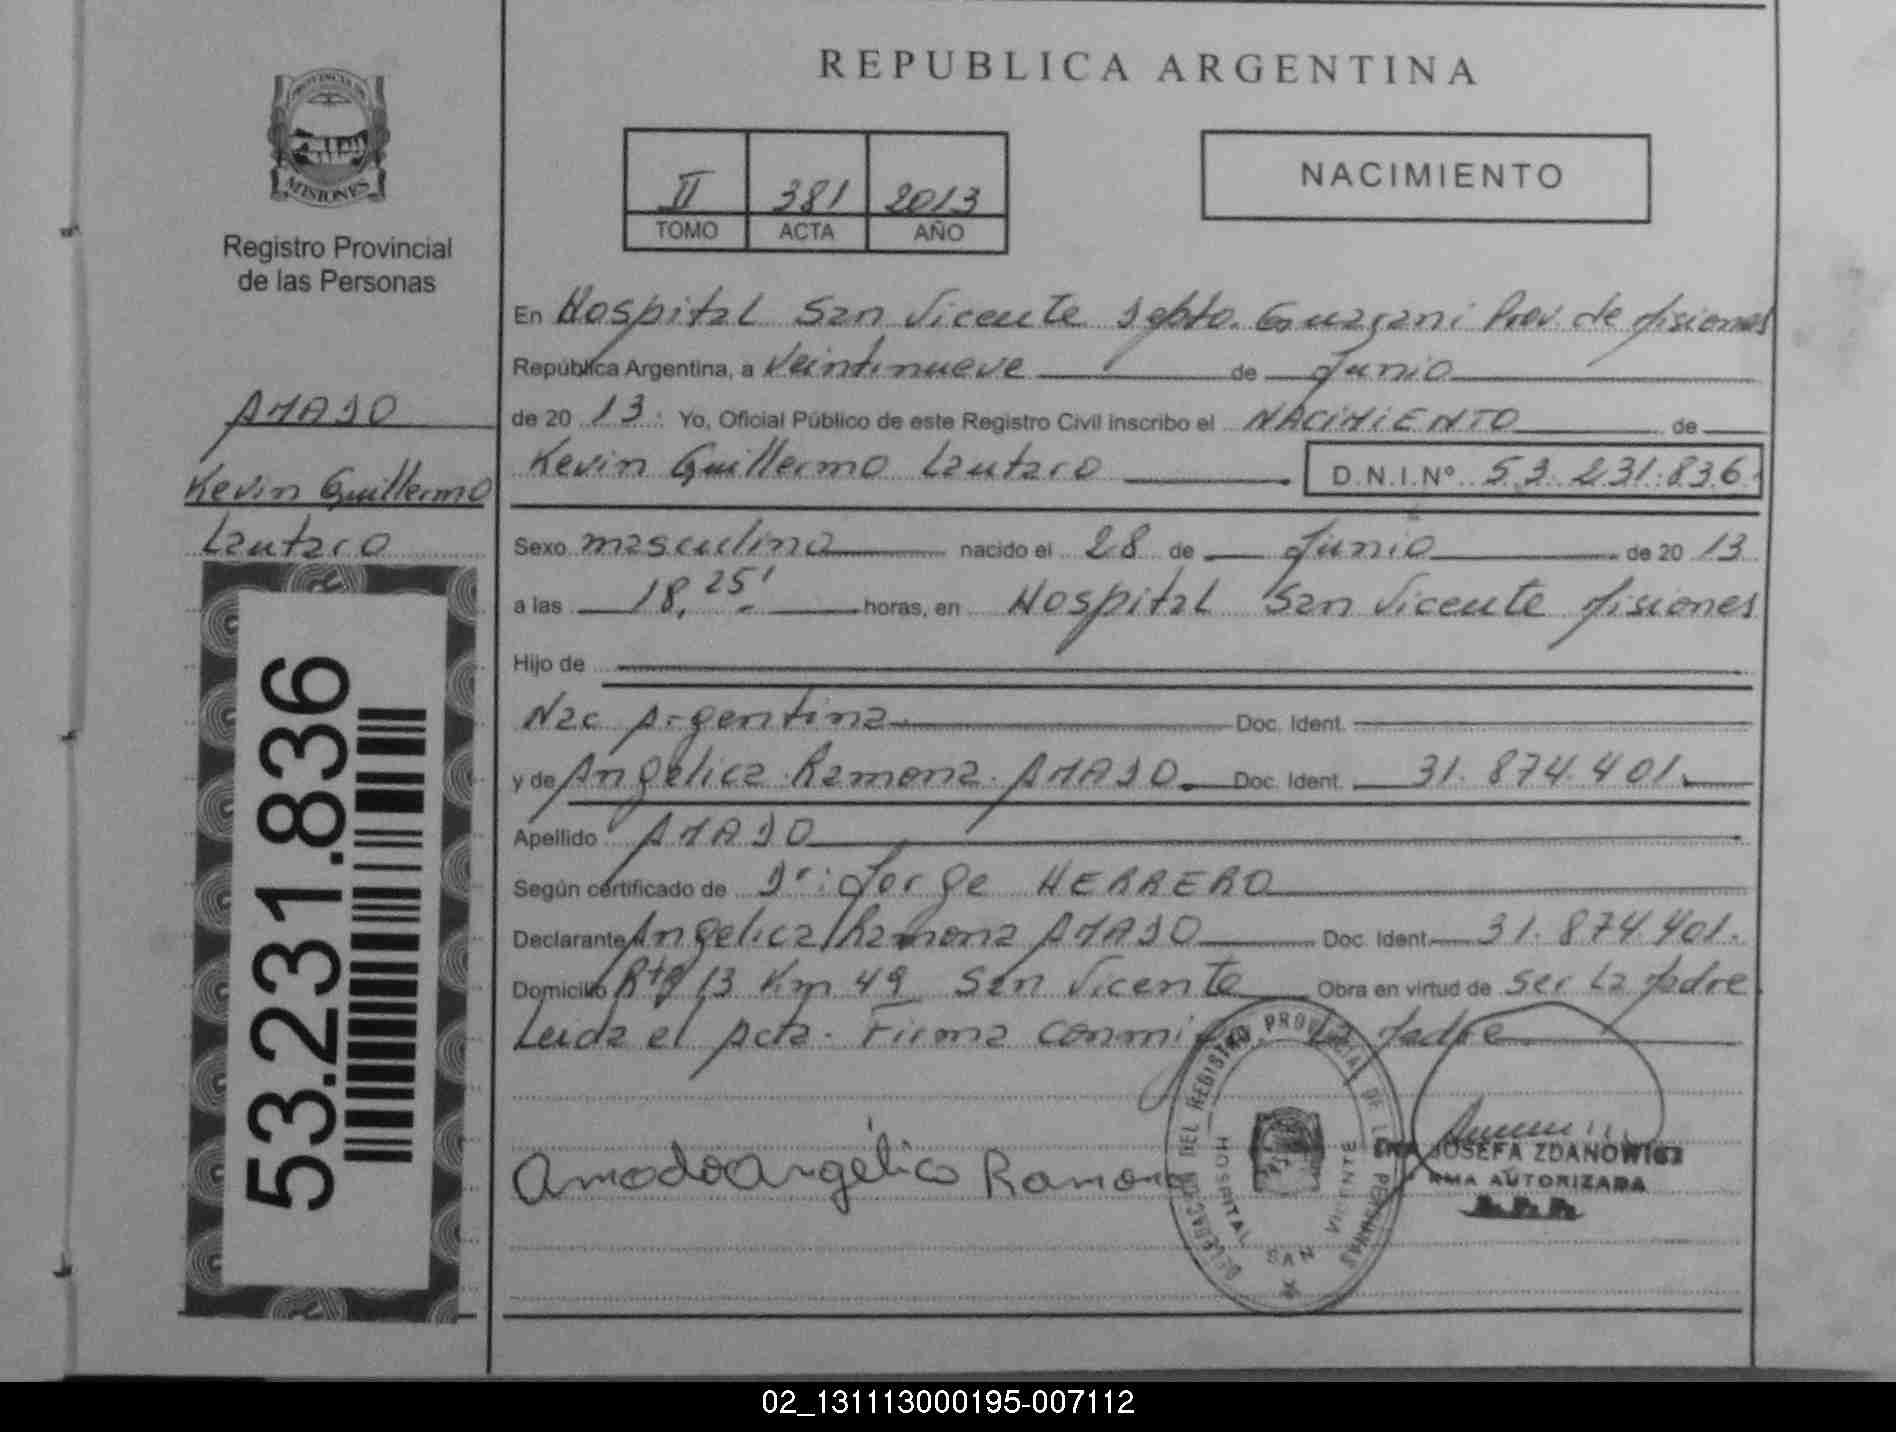 REPUBLICA ARGENTINA
PROVINCIA DE
MISIONES
Registro Provincial
de las Personas
II 381 2013
TOMO ACTA AÑO
NACIMIENTO
AMADO
Kevin Guillermo
Lautaro
53.231.836
En Hospital San Vicente Dpto. Guarani Prov. de Misiones
República Argentina, a Veintinueve de Junio
de 20 13. Yo, Oficial Público de este Registro Civil inscribo el NACIMIENTO de
Kevin Guillermo Lautaro D.N.I.Nº 53.231.836
Sexo masculino nacido el 28 de Junio de 20 13
a las 18,25' horas, en Hospital San Vicente Misiones
Hijo de
Nac Argentina Doc. Ident.
y de Angelica Ramona AMADO Doc. Ident. 31.874.401.
Apellido AMADO
Según certificado de Dr: Jorge HERRERO
Declarante Angelica Ramona AMADO Doc. Ident. 31.874.401.
Domicilio Rta 13 Km 49 San Vicente Obra en virtud de ser La Madre
Leida el Acta. Firma conmigo La Madre
Amado Angélica Ramona
DELEGACION DEL REGISTRO PROVINCIAL DE LAS PERSONAS
HOSPITAL SAN VICENTE
JOSEFA ZDANOWICZ
FIRMA AUTORIZADA
02_131113000195-007112